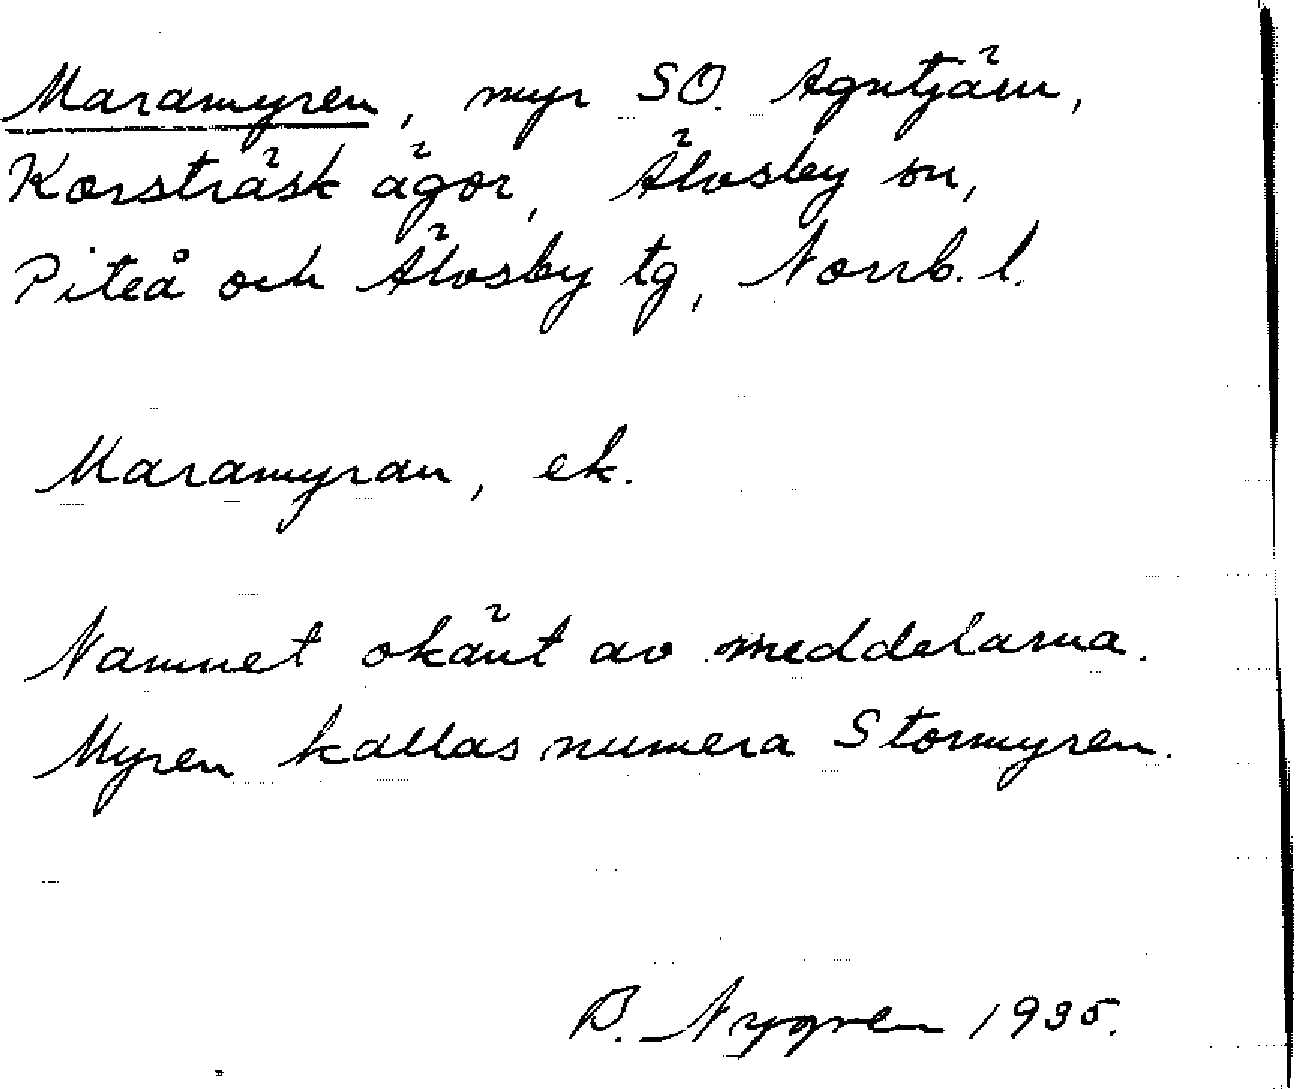 Maramyren, myr SO. Agntjärn,
Korsträsk ägor, Älvsby sn,
Piteå och Älvsby tg, Norrb. l.
Maramyran, ek.
Namnet okänt av meddelarna.
Myren kallas numera Stormyren.
B. Nygren 1935.